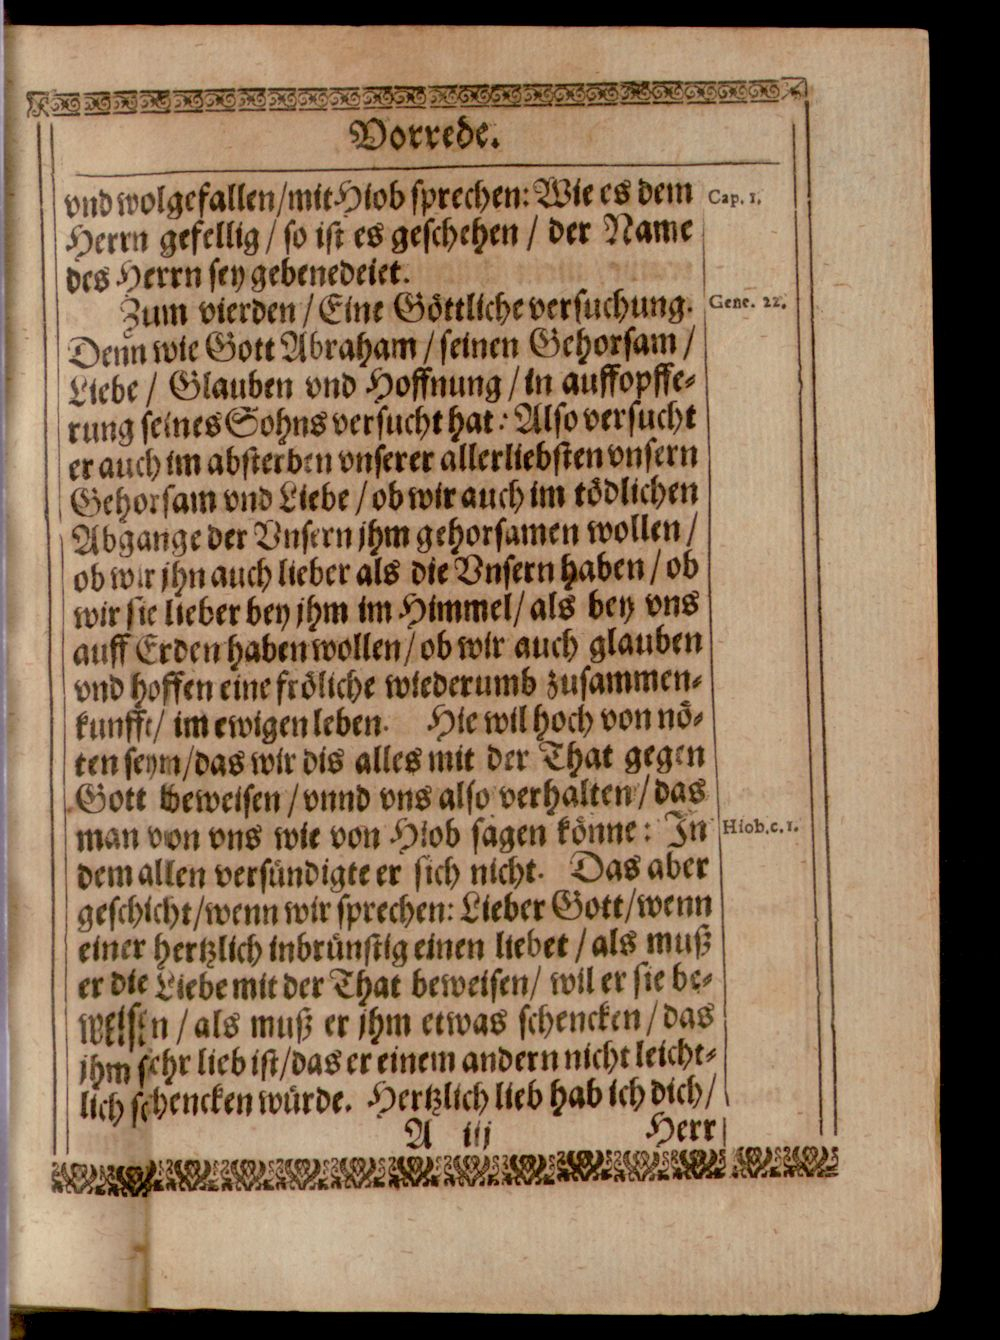 Vorrede.
vnd wolgefallen/mit Hiob sprechen: Wie es dem
Cap. 1.
Herrn gefellig / so ist es geschehen / der Name
des Herrn sey gebenedeiet.
Zum vierden / Eine Göttliche versuchung.
Gene. 22.
Denn wie Gott Abraham / seinen Gehorsam /
Liebe / Glauben vnd Hoffnung / in auffopffe-
rung seines Sohns versucht hat: Also versucht
er auch im absterben vnserer allerliebsten vnsern
Gehorsam vnd Liebe / ob wir auch im tödlichen
Abgange der Vnsern jhm gehorsamen wollen /
ob wir jhn auch lieber als die Vnsern haben / ob
wir sie lieber bey jhm im Himmel/ als bey vns
auff Erden haben wollen / ob wir auch glauben
vnd hoffen eine fröliche wiederumb zusammen-
kunfft/ im ewigen leben. Hie wil hoch von nö-
ten seyn/das wir dis alles mit der That gegen
Gott beweisen / vnnd vns also verhalten / das
man von vns wie von Hiob sagen könne: In
Hiob.c.1.
dem allen versündigte er sich nicht. Das aber
geschicht/wenn wir sprechen: Lieber Gott/wenn
einer hertzlich inbrünstig einen liebet / als muß
er die Liebe mit der That beweisen/ wil er sie be-
weisen / als muß er jhm etwas schencken / das
jhm sehr lieb ist/das er einem andern nicht leicht-
lich schencken würde. Hertzlich lieb hab ich dich/
A iij Herr